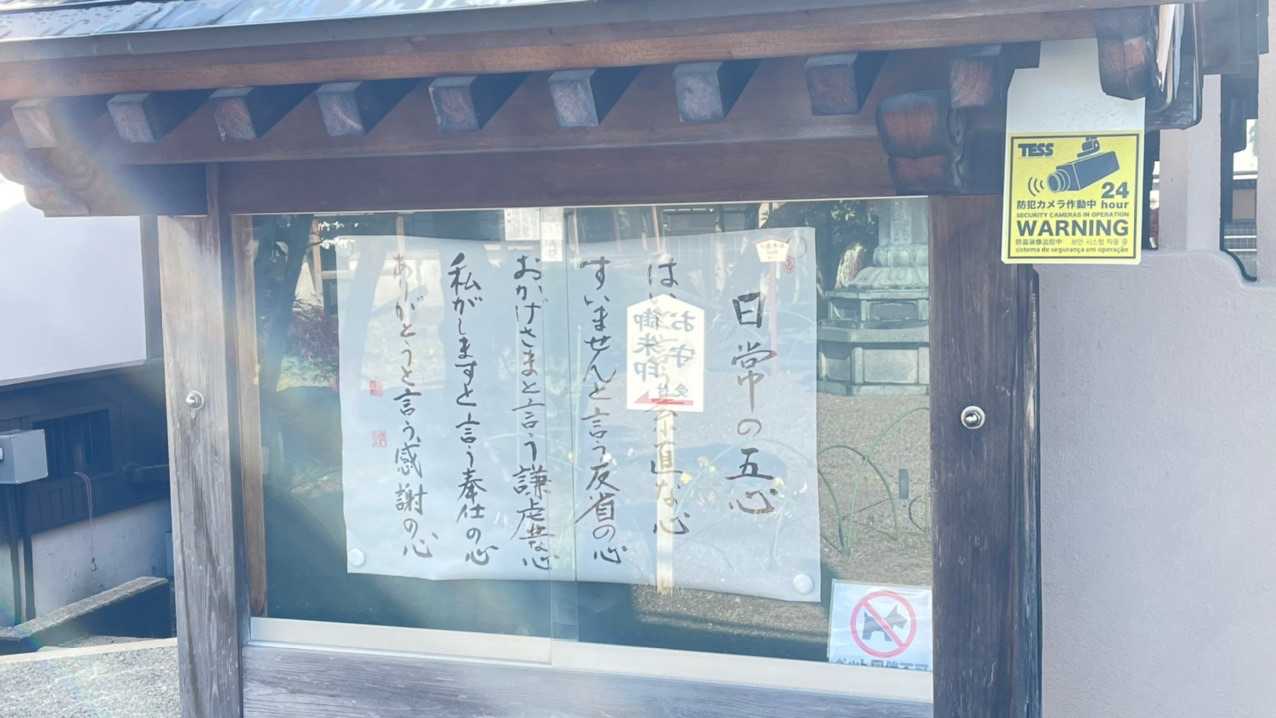 日常の五心
はい
直な心
すいませんと言う反省の心
おかげさまと言う謙虚な心
私がしますと言う奉仕の心
ありがとうと言う感謝の心
お守
御朱印
TESS
24
hour
防犯カメラ作動中
SECURITY CAMERAS IN OPERATION
WARNING
보안 시스템 작동 중
sistema de segurança em operação